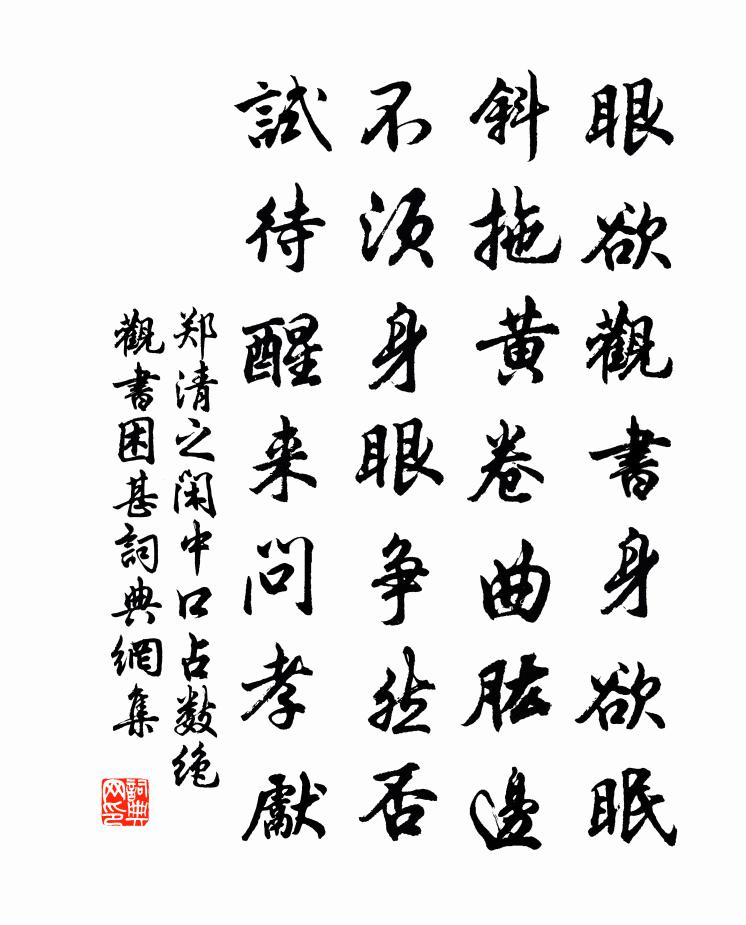 眼欲觀書身欲眠
斜拖黄卷曲肱邊
不須身眼争然否
試待醒来問孝獻
郑清之閑中口占数绝
觀書困甚詞典網集
詞典網印